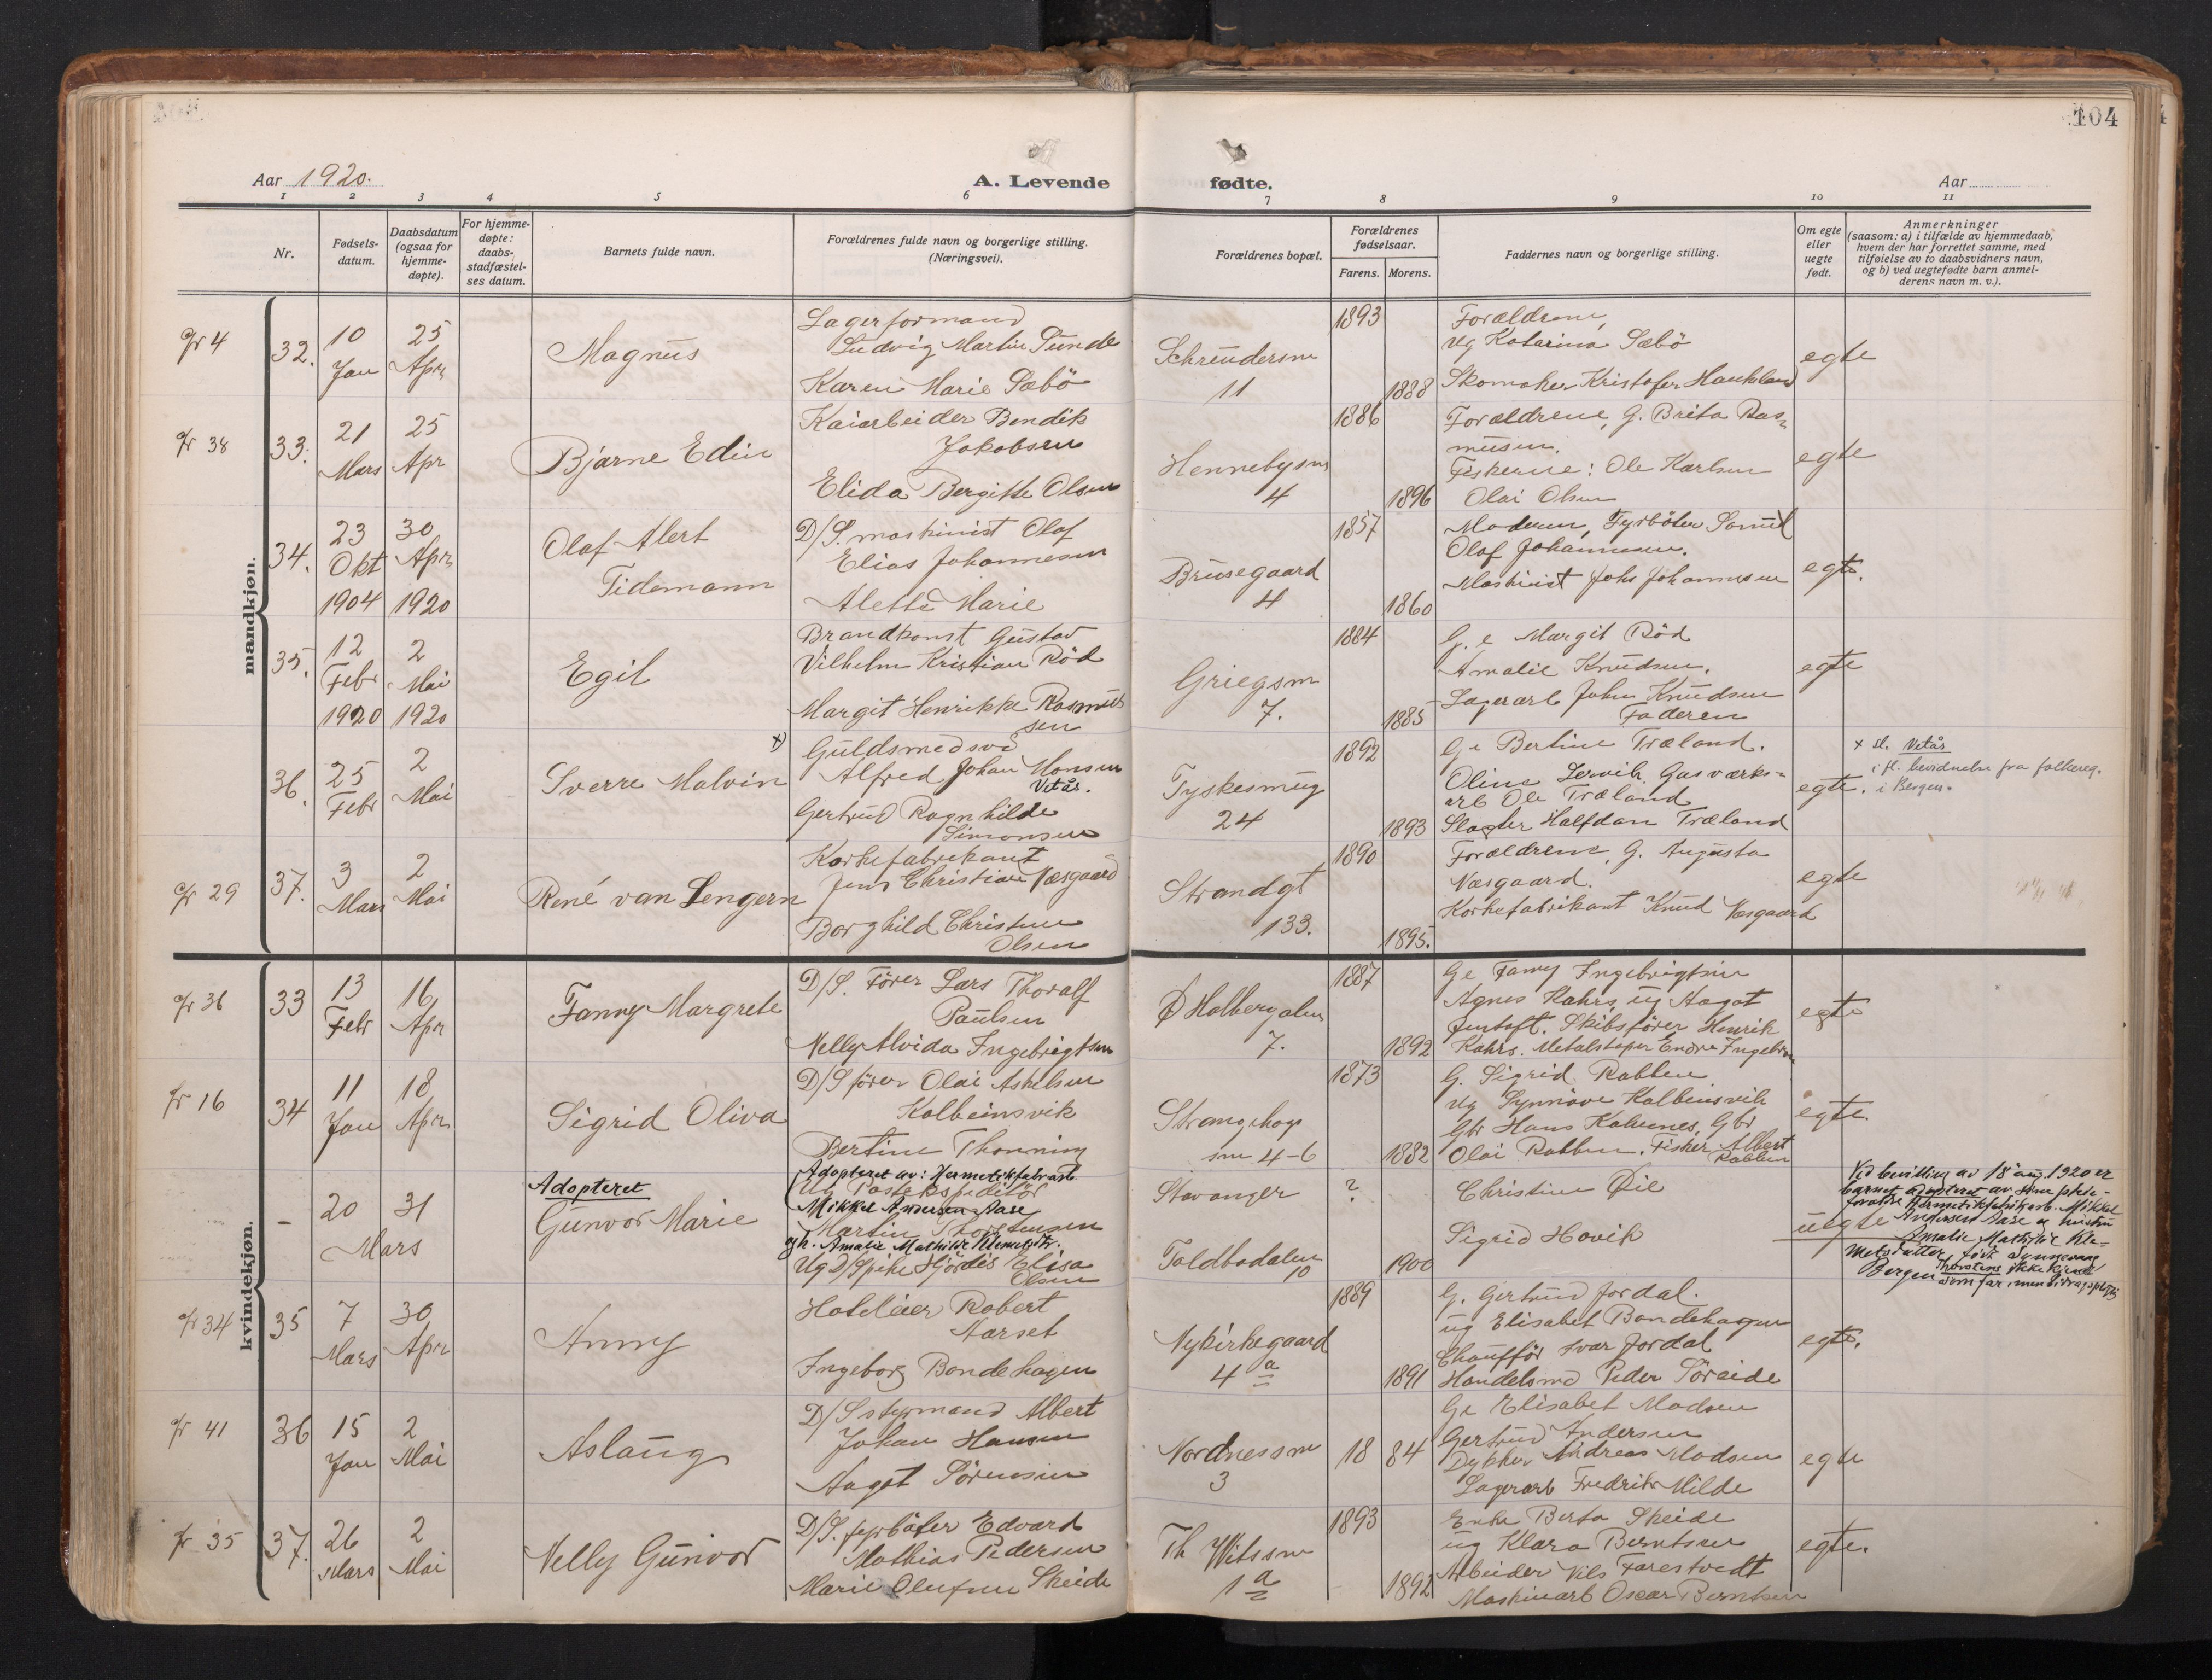 104
Aar 1920.
A. Levende
fødte.
Aar
1 2 3 4 5 6 7 8 9 10 11
Nr.
Fødsels-
datum.
Daabsdatum
(ogsaa for
hjemme-
døpte).
For hjemme-
døpte:
daabs-
stadfæstel-
ses datum.
Barnets fulde navn.
Forældrenes fulde navn og borgerlige stilling.
(Næringsvei).
Forældrenes bopæl.
Forældrenes
fødselsaar.
Farens. Morens.
Faddernes navn og borgerlige stilling.
Om egte
eller
uegte
født.
Anmerkninger
(saasom: a) i tilfælde av hjemmedaab,
hvem der har forrettet samme, med
tilføielse av to daabsvidners navn,
og b) ved uegtefødte barn anmel-
derens navn m. v.).
mandkjøn.
32.
10
Jan
25
Apr
Magnus
Lagerformand
Ludvig Martin Tunde
Karen Marie Sæbö
11
1893
1888
Forældrene,
ug Katarina Sæbö
Skomaker Kristofer Haukland
egte
38
33.
21
Mars
25
Apr
Bjarne Edin
Kaiarbeider Bendik
Jakobsen
Elida Bergitte Olsen
4
1886
1896
Forældrene, G. Brita Ras-
musen.
Fiskerne: Ole Karlsen
Olai Olsen
egte
34.
23
Okt
1904
30
Apr
1920
Olaf Alert
Tidemann
D/S. maskinist Olaf
Elias Johannesen
Alette Marie
Brusegaard
4
1857
1860
Moderen, Fyrböter
Olaf Johannesen.
Maskinist Johs Johannesen
egte.
35.
12
Febr
1920
2
Mai
1920
Egil
Brandkonst Gustav
Vilhelm Kristian Röd
Margit Henrikke Rasmus
sen
Griegsm
7.
1884
1885
G. e Margit Röd
Amalie Knudsen.
Lagerarb John Knudsen
Faderen
egte
36.
25
Febr
2
Mai
Sverre Malvin
x)
Guldsmedsv
Alfred Johan Monsen
Vetås.
Gertrud Ragnhilde
Simonsen
Tyskesmug
24
1892
1893
Ge Bertine Træland.
Oline Gasværks-
arb Ole Træland
Slagter Halfdan Træland
egte.
x sl. Vetås
i fl. bevidnelse fra folkereg.
i Bergen.
29
37.
3
Mars
2
Mai
René van Lengern
Korkefabrikant
Jens Christian Næsgaard
Borghild Christine
Olsen
Strandgt
133.
1890
1895.
Forældrene, G. Augusta
Næsgaard.
Korkefabrikant Knud Næsgaard
egte
kvindekjøn.
36
33
13
Febr
16
Apr
Fanny Margrete
D/S. Förer Lars Thoralf
Paulsen
Nelly Alvida Ingebrigtsen
7.
1887
1892
Ge Fanny Ingebrigtsen
Agnes Kahrs, ug Aagot
Skibsförer Henrik
Kahrs. Metalstöper
egte
16
34
11
Jan
18
Apr
Sigrid Oliva
D/S förer Olai Askelsen
Kolbeinsvik
Bertine Thonning
Strangehag
sm 4-6
1873
1882
G. Sigrid Rabben
ug Synnöve Kolbeinsvik
Gbr Hans Gbr
Olai Rabben. Fisker Albert
Rabben
egte.
Adopteret
-
20
31
Mars
Gunvor Marie
Adopteret av: Hermetikfabrarb.
Ug Postekspeditör
Mikkel Andersen Aase
Martin Thorstensen
og h. Amalie Mathilde Klemetsdtr.
Ug D/Spike Hjördis Elisa
Olsen
Stavanger
Toldbodalm
10
?
1900
Christine Öie
Sigrid Hovik
uegte
Ved bevilling av 18 aug. 1920 er
barnet adopteret av sine pleie-
forældre Hermetikfabrikarb. Mikkel
Andersen Aase og hustru
Amalie Mathilde Kle-
metsdatter,
Bergen
34
35
7
Mars
30
Apr
Anny
Hoteleier Robert
Aarset
Ingeborg Bondehagen
Nykirkegaard
4 a
1889
1891
G. Gertrud Jordal.
ug Elisabet Bondehagen
Chaufför Ivar Jordal
Handelsmd Peder Söreide
egte.
41
36
15
Jan
2
Mai
Aslaug
D/S styrmand Albert
Johan Hansen
Aagot Sörensen
Nordnessm
3
18 84
Ge Elisabet Madsen
Gertrud Andersen
Dykker Andreas Madsen
Lagerarb Fredrik Milde
egte
35
37.
26
Mars
2
Mai
Nelly Gunvor
D/S. fyrböter Edvard
Mathias Pedersen
Marie Olufine Skeide
Th Witssm
1 a
1893
1892
Enke Berta Skeide
ug Klara Berntsen
Arbeider Nils Farestvedt
Maskinarb Oscar Berntsen
egte.